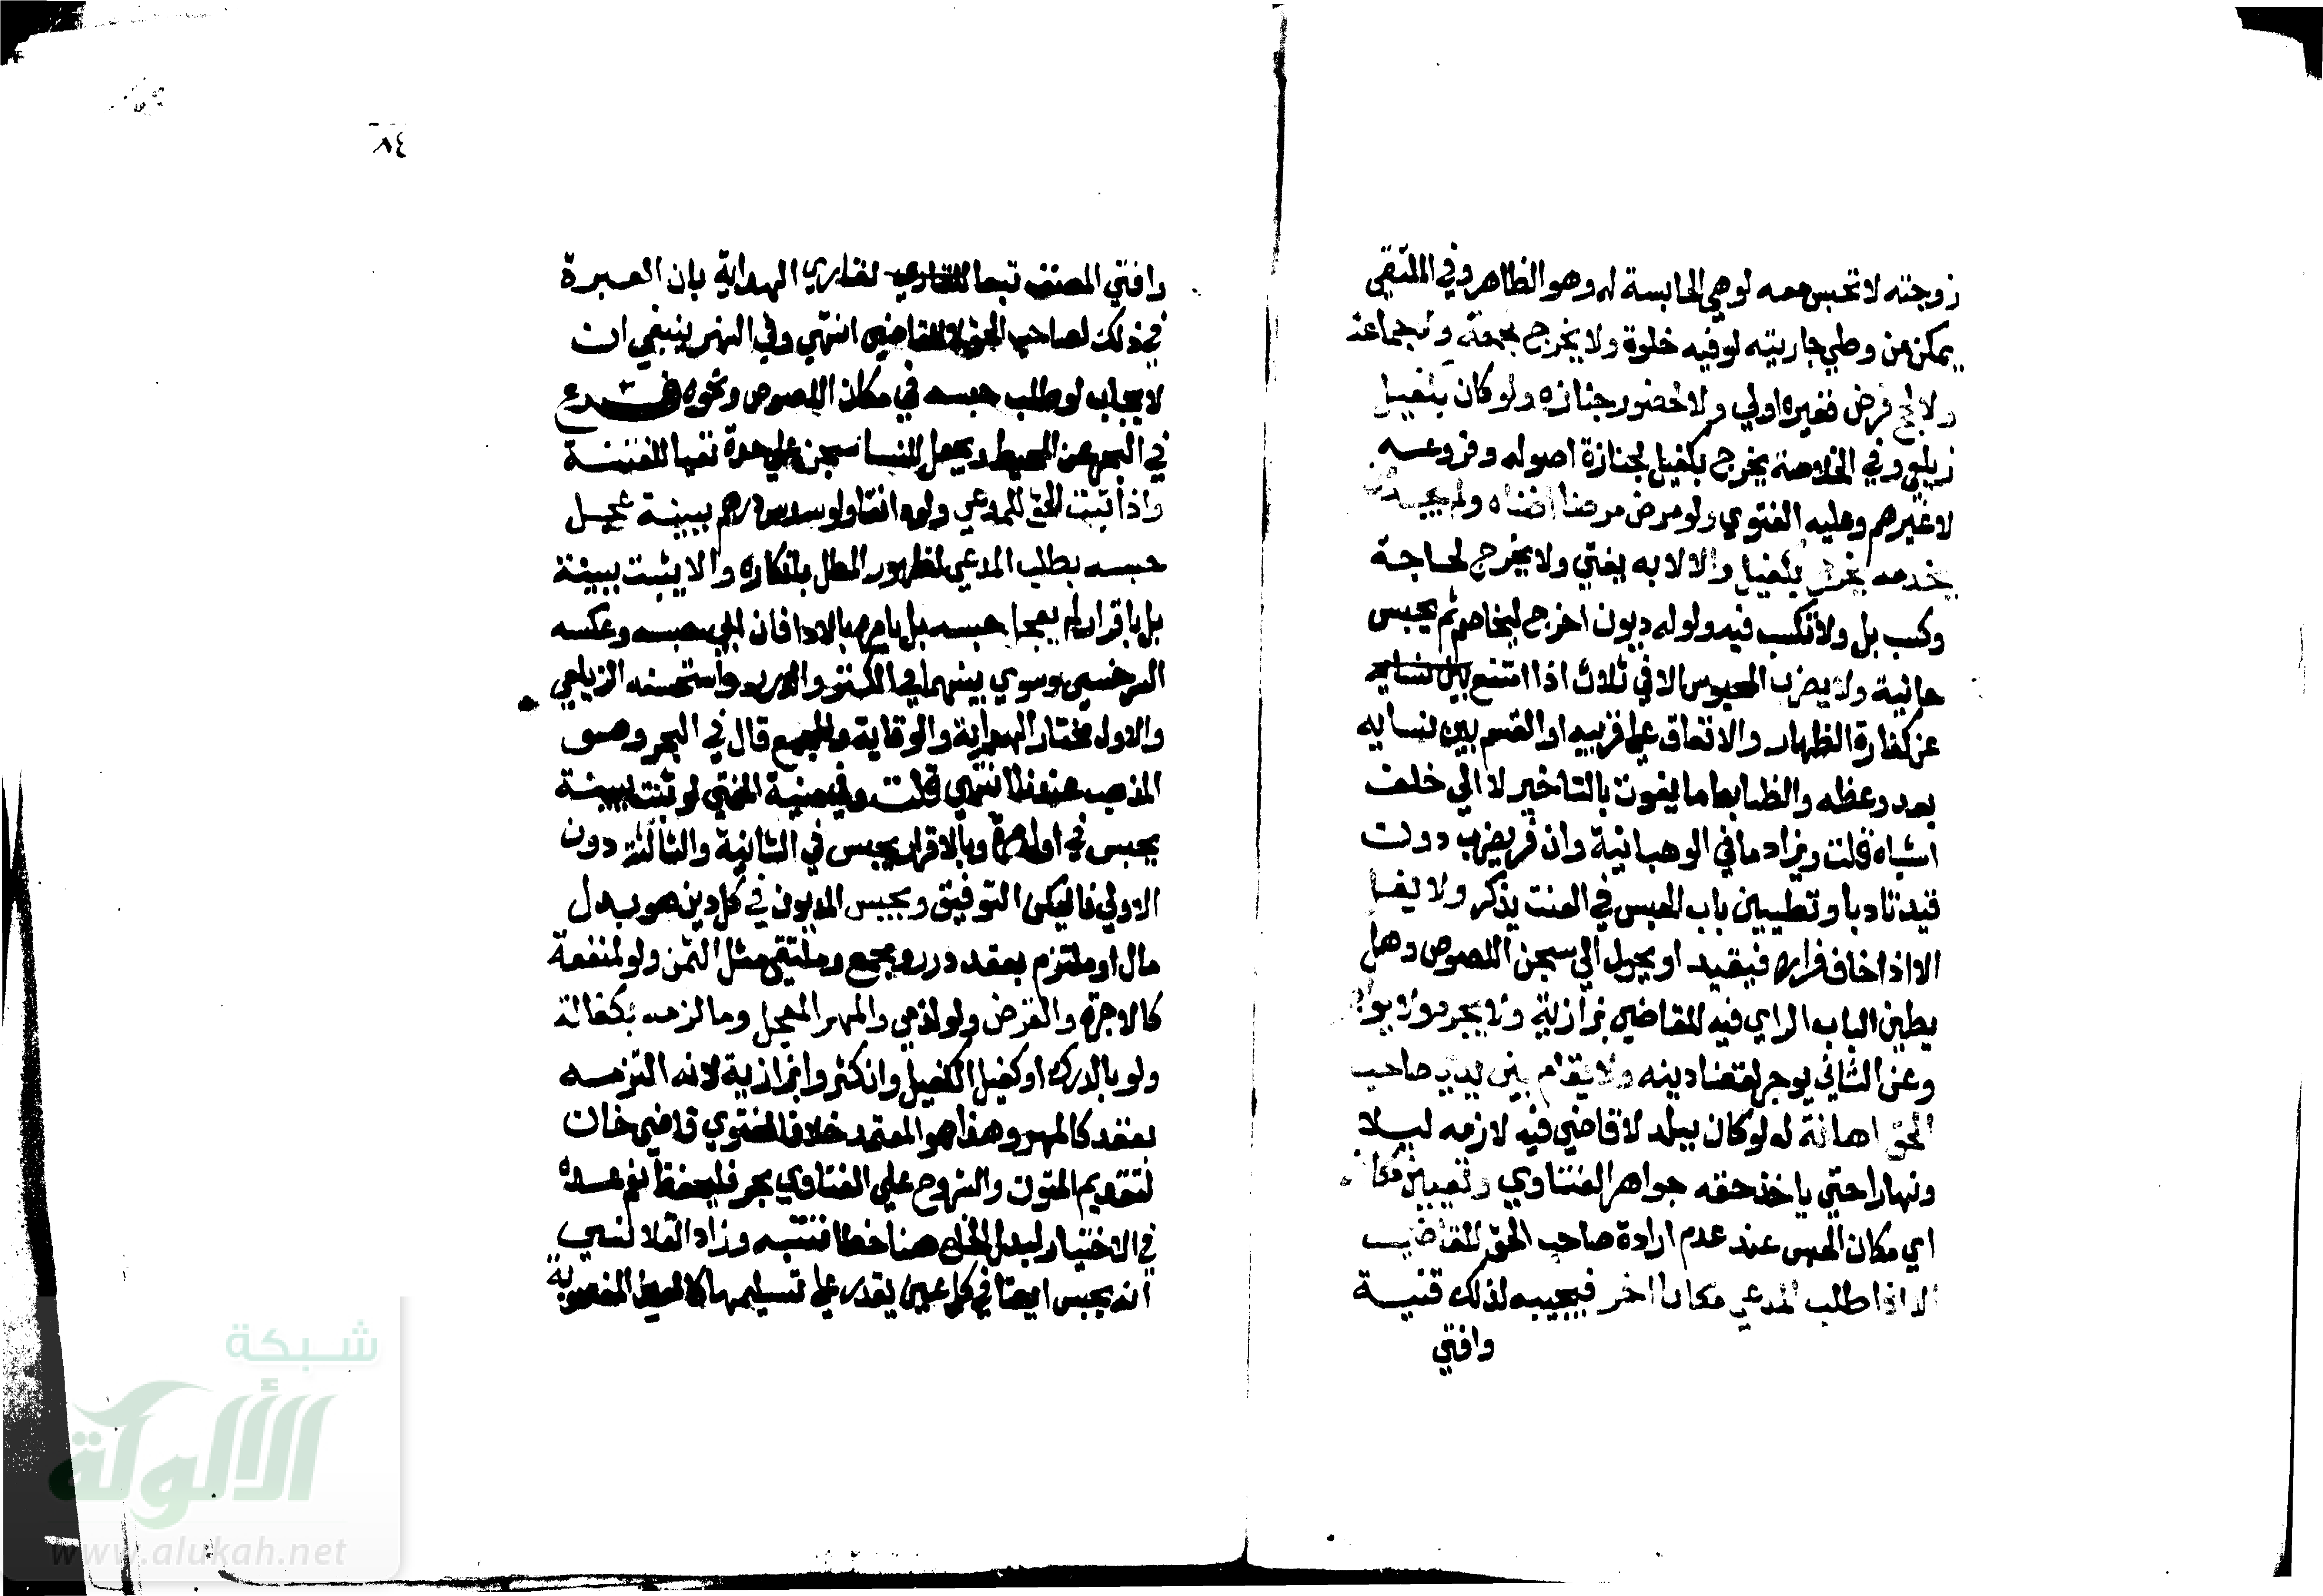 زوجته لا تحبس معه لو هي الحابسة له وهو الظاهر وفي الملتقى
يمكن من وطي جاريته لو فيه خلوة ولا يخرج لجمعة ولا جماعة
ولا لحج فرض فغيره اولي ولا لحضور جنازه ولو كان بكفيل
زيلعي وفي الخلاصة يخرج بكفيل لجنازة اصوله وفروعه
لا غيرهم وعليه الفتوي ولو مرض مرضا اضناه ولم يجد من
يخدمه يخرج بكفيل والا لا به يفتي ولا يخرج لحاجة
وكسب بل ولا يتكسب فيه ولو له ديون اخرج ليخاصم ثم يحبس
خانية ولا يضرب المحبوس الا في ثلاث اذا امتنع
عن كفارة الظهار والانفاق علي قريبه او القسم بين نسايه
بعد وعظه والضابط ما يفوت بالتاخير لا الي خلف
اشباه قلت ويزاد ما في الوهبانية وان فر يضرب دون
قيد تاديبا وتطيين باب الحبس في العنت يذكر ولا يغل
الا اذا خاف فراره فيقيد او يحول الي سجن اللصوص وهل
يطين الباب الراي فيه للقاضي بزازية ولا يجرد ولا يواجر
وعن الثاني يوجر لقضا دينه ولا يقام بين يدي صاحب
الحق اهانة له لو كان ببلد لا قاضي فيه لازمه ليلا
ونهارا حتي ياخذ حقه جواهر الفتاوي وتعيين مكانه
اي مكان الحبس عند عدم ارادة صاحب الحق للقاضي
الا اذا طلب المدعي مكانا اخر فيجيبه لذلك قنية
وافتي
٨٤
وافتي المصنف تبعا لقاري الهداية بان العبرة
في ذلك لصاحب الحق لا للقاضي انتهي وفي النهر ينبغي ان
لا يجاب لو طلب حبسه في مكان اللصوص ونحوه فرع
في البحر عن المحيط ويجعل للنسا سجن علي حدة نفيا للفتنة
واذا ثبت الحق للمدعي ولو دانقا ولو سدس درهم ببينة عجل
حبسه بطلب المدعي لظهور المطل بانكاره والا يثبت ببينة
بل باقرار لم يعجل حبسه بل يامره بالادا فان ابي حبسه وعكسه
السرخسي وسوي بينهما في الكنز والدرر واستحسنه الزيلعي
والاول مختار الهداية والوقاية والمجمع قال في البحر وهو
المذهب عندنا انتهي قلت وفي منية المفتي لو ثبت ببينة
يحبس في اول مرة وبالاقرار يحبس في الثانية والثالثة دون
الاولي فاليكن التوفيق ويحبس المديون في كل دين هو بدل
مال او ملتزم بعقد درر ومجمع وملتقي مثل الثمن ولو لمنفعة
كالاجرة والقرض ولو لذمي والمهر المعجل وما لزمه بكفالة
ولو بالدرك او كفيل الكفيل وان كثروا بزازية لانه التزمه
بعقد كالمهر وهذا هو المعتمد خلافا لفتوي قاضي خان
لتقديم المتون والشروح علي الفتاوي بحر فليحفظ نعم عده
في الاختيار لبدل الخلع هنا خطا فتنبه وزاد القلانسي
انه يحبس ايضا في كل عين يقدر علي تسليمها كالعين المغصوبة
شبكة
الألوكة
www.alukah.net